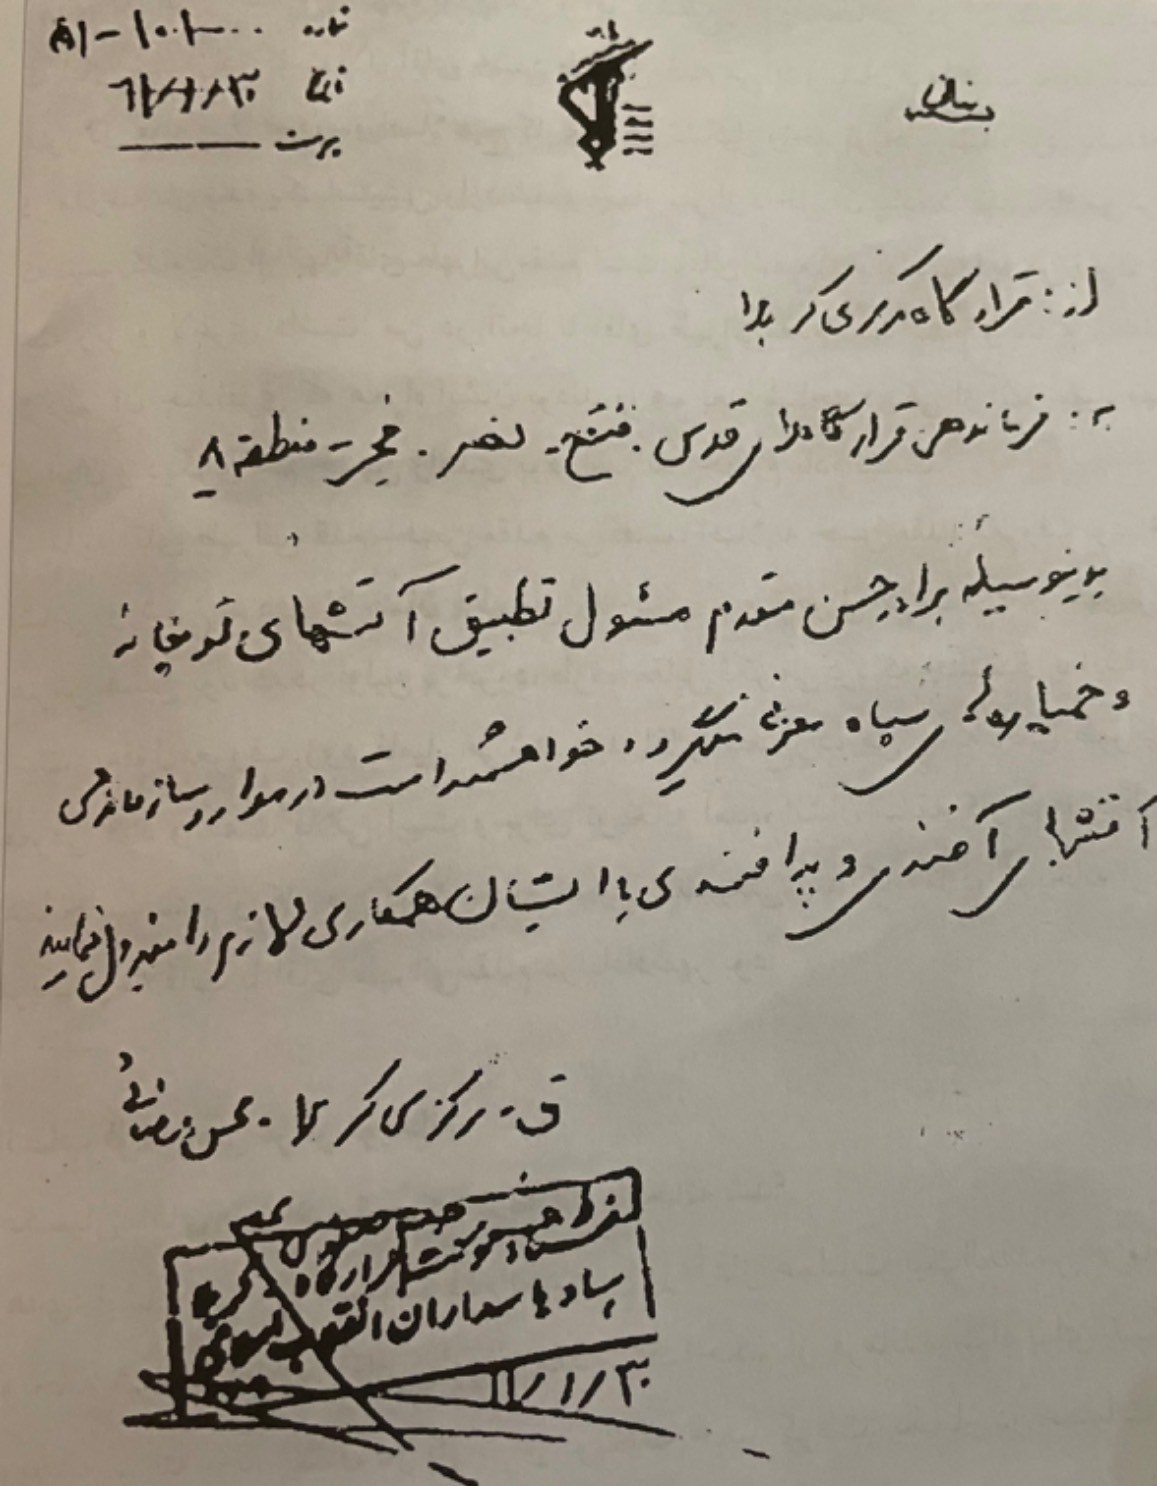 بسمه تعالی
شماره
تاریخ ۶۱/۱/۳۰
پیوست
از: قرارگاه مرکزی کربلا
به: فرماندهی قرارگاههای قدس. فتح. نصر. فجر - منطقه ۸
بدینوسیله برادر حسن مقدم مسئول تطبیق آتشهای توپخانه
و خمپاره‌های سپاه معرفی میگردد، خواهشمند است در موارد سازماندهی
آتشهای آفندی و پدافندی با ایشان همکاری لازم را مبذول نمایند
ق - مرکزی کربلا - محسن رضائی
فقط جهت
قرارگاه کربلا
سپاه پاسداران انقلاب اسلامی
۶۱/۱/۳۰